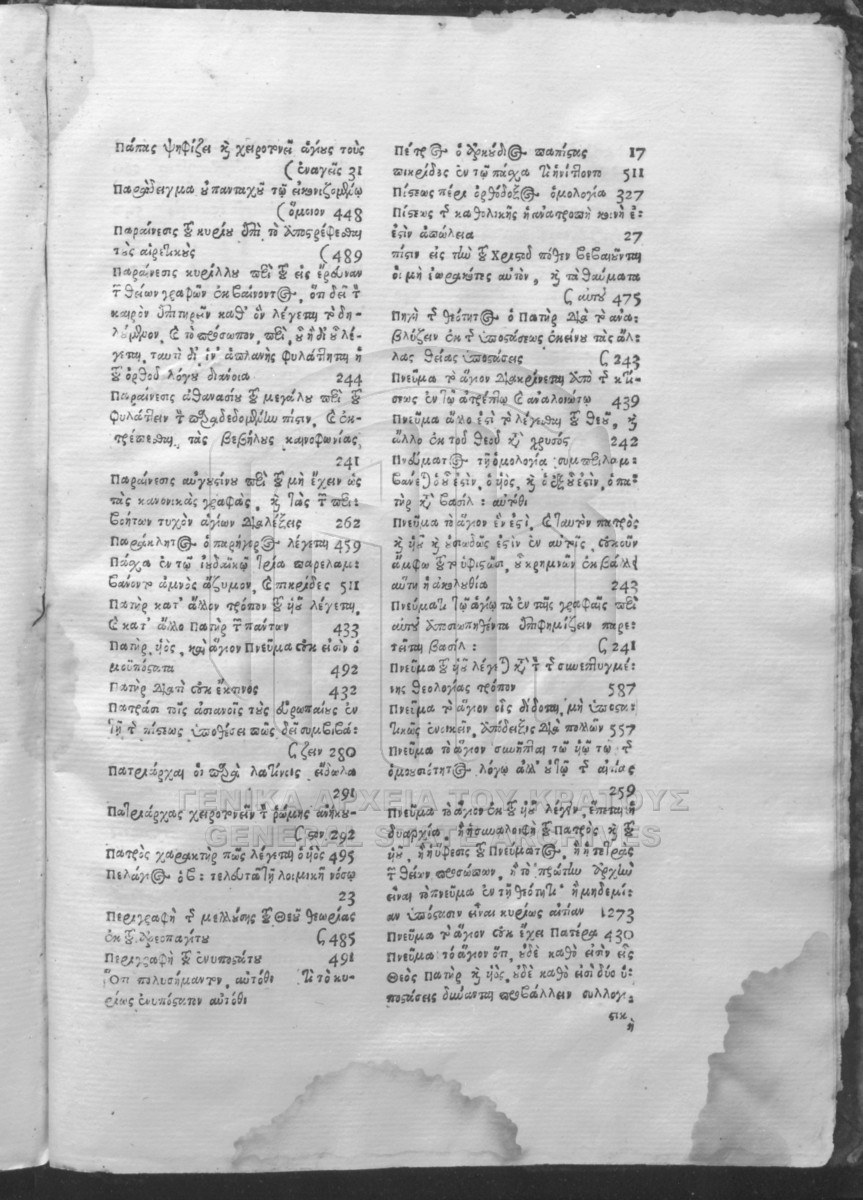 Πάπας ψηφίζει κ χειροτονεῖ ἁγίους τοὺς
( ἐναγεῖς 31
Παράδειγμα οὐ πανταχοῦ τῷ εἰκονιζομένῳ
( ὅμοιον 448
Παραίνεσις τοῦ κυρίου ἐπὶ τὸ ἀποστρέφεσθαι
τοὺς αἱρετικοὺς ( 489
Παραίνεσις κυρίλλου περὶ τοῦ εἰς ἔρευναν
τῶν θείων γραφῶν ἐκβαίνοντος, ὅτι δεῖ τὸν
καιρὸν ἐπιτηρεῖν καθ' ὃν λέγεται τὸ δη-
λούμενον, καὶ τὸ πρόσωπον, περὶ, οὗ ἢ δι' οὗ λέ-
γεται, ταυτὶ δὲ ἵν' ἀπλανὴς φυλάττηται ἡ
τοῦ ὀρθοῦ λόγου διάνοια 244
Παραίνεσις ἀθανασίου τοῦ μεγάλου περὶ τοῦ
φυλάττειν τὴν παραδεδομένην πίστιν, καὶ ἐκ-
τρέπεσθαι τὰς βεβήλους καινοφωνίας
241
Παραίνεσις αὐγουστίνου περὶ τοῦ μὴ ἔχειν ὡς
τὰς κανονικὰς γραφὰς, καὶ τὰς τῶν περι:
βοήτων τυχὸν ἁγίων διαλέξεις 262
Παράκλητος ὁ παρήγορος λέγεται 459
Πάσχα ἐν τῷ ἰουδαϊκῷ τρία παρελαμ:
βάνοντο ἀμνὸς ἄζυμον, καὶ πικρίδες 511
Πατὴρ κατ' ἄλλον τρόπον τοῦ υἱοῦ λέγεται,
καὶ κατ' ἄλλο Πατὴρ τῶν πάντων 433
Πατὴρ, υἱὸς, καὶ ἅγιον Πνεῦμα οὐκ εἰσὶν ὁ
μοϋπόστατα 492
Πατὴρ διατὶ οὐκ ἔκτινος 432
Πατράσι τοῖς ἀσιανοῖς τοὺς εὐρωπαίους ἐν
τῇ τῆς πίστεως ὑποθέσει πῶς δεῖ συμβιβά:
( ζειν 280
Πατριάρχαι οἱ παρὰ λατίνοις εἴδωλα
291
Πατριάρχας χειροτονεῖν τὸν ῥώμης ἀνήκου-
( στον 292
Πατρὸς χαρακτὴρ πῶς λέγεται ὁ υἱὸς 495
Πελάγιος ὁ β: τελευτᾷ τῇ λοιμικῇ νόσῳ
23
Περιγραφὴ τῆς μελλούσης τοῦ Θεοῦ θεωρίας
ἐκ τοῦ ἀρεοπαγίτου ( 485
Περιγραφὴ τοῦ ἐνυποστάτου 491
Ὅτι πολυσήμαντον, αὐτόθι τί τὸ κυ-
ρίως ἐνυπόστατον αὐτόθι
Πέτρος ὁ ἀρκούδιος παπίστας 17
πικρίδες ἐν τῷ πάσχα τί ᾐνίττοντο 511
Πίστεως πέρι ὀρθόδοξος ὁμολογία 327
Πίστεως τῆς καθολικῆς ἡ ἀνατροπὴ κοινὴ ἐ:
ἐστὶν ἀπώλεια 27
πίστιν εἰς τὴν τοῦ Χριστοῦ πόθεν βεβαιοῦνται
οἱ μὴ ἑωρακότες αὐτὸν, κ τὰ θαύματα
( αὐτοῦ 475
Πηγὴ τῆς θεότητος ὁ Πατὴρ διὰ τὸ ἀνα:
βλύζειν ἐκ τῆς ὑποστάσεως ἐκείνου τὰς ἄλ:
λας θείας ὑποστάσεις ( 243
Πνεῦμα τὸ ἅγιον διακρίνεται ἀπὸ τῆς κτί-
σεως ἐν τῷ ἀτρέπτῳ καὶ ἀναλλοιώτῳ 439
Πνεῦμα ἄλλο ἐστὶ τὸ λέγεσθαι τοῦ θεοῦ, κ
ἄλλο ἐκ τοῦ θεοῦ κατὰ χρυσόσ 242
Πνεύματος τῇ ὁμολογίᾳ συμπεριλαμ:
βάνεται οὗ ἐστὶν, ὁ υἱὸς, κ ὁ ἐξ οὗ ἐστὶν, ὁ πα-
τὴρ κατὰ βασίλ: αὐτόθι
Πνεῦμα τὸ ἅγιον ἕν ἐστὶ, καὶ ταυτὸν πατρὸς
κ υἱοῦ κ οὐσιωδῶς ἐστὶν ἐν αὐτοῖς, οὐκοῦν
ἄμφω τοῦτο ὑφιστῶσι, οὐ κρημνῶν ἐκβάλλει
αὕτη ἡ ἀκολουθία 243
Πνεύματι τῷ ἁγίῳ τὰ ἐν ταῖς γραφαῖς περὶ
αὐτοῦ ἀποσιωπηθέντα ἐπιφημίζειν παρε-
τεῖται βασίλ: ( 241
Πνεῦμα τοῦ υἱοῦ λέγεται κατὰ τὸν τῆς συνεπτυγμέ-
νης θεολογίας τρόπον 587
Πνεῦμα τὸ ἅγιον οἷς δίδοται, μὴ ὑποστα:
τικῶς ἐνοικεῖν, ἀπόδειξις διὰ πολλῶν 557
Πνεῦμα τὸ ἅγιον συνῆπται τῷ υἱῷ τῷ τῆς
ὁμοουσιότητος λόγῳ ἀλλ' οὐ τῷ τῆς αἰτίας
259
Πνεῦμα τὸ ἅγιον ἐκ τοῦ υἱοῦ λέγειν, ἕπεται ἡ
δυαρχία, ἢ ἡ συναλοιφὴ τοῦ Πατρὸς κ τοῦ
υἱοῦ, ἢ ἡ ὕφεσις τοῦ Πνεύματος, ἢ ἡ τετρὰς
τῶν θείων προσώπων, ἢ τὸ πρώτην ἀρχὴν
εἶναι τὸ πνεῦμα ἐν τῇ θεότητι ἢ μηδεμί-
αν ὑπόστασιν εἶναι κυρίως αἰτίαν 1273
Πνεῦμα τὸ ἅγιον οὐκ ἔχει Πατέρα 430
Πνεῦμα τὸ ἅγιον ὅτι, οὐδὲ καθὸ εἰσὶν εἷς
Θεὸς Πατὴρ κ υἱὸς, οὐδὲ καθὸ εἰσὶ δύο ὑ:
ποστάσεις δύνανται προβάλλειν συλλογ:
ισικ
ἡ